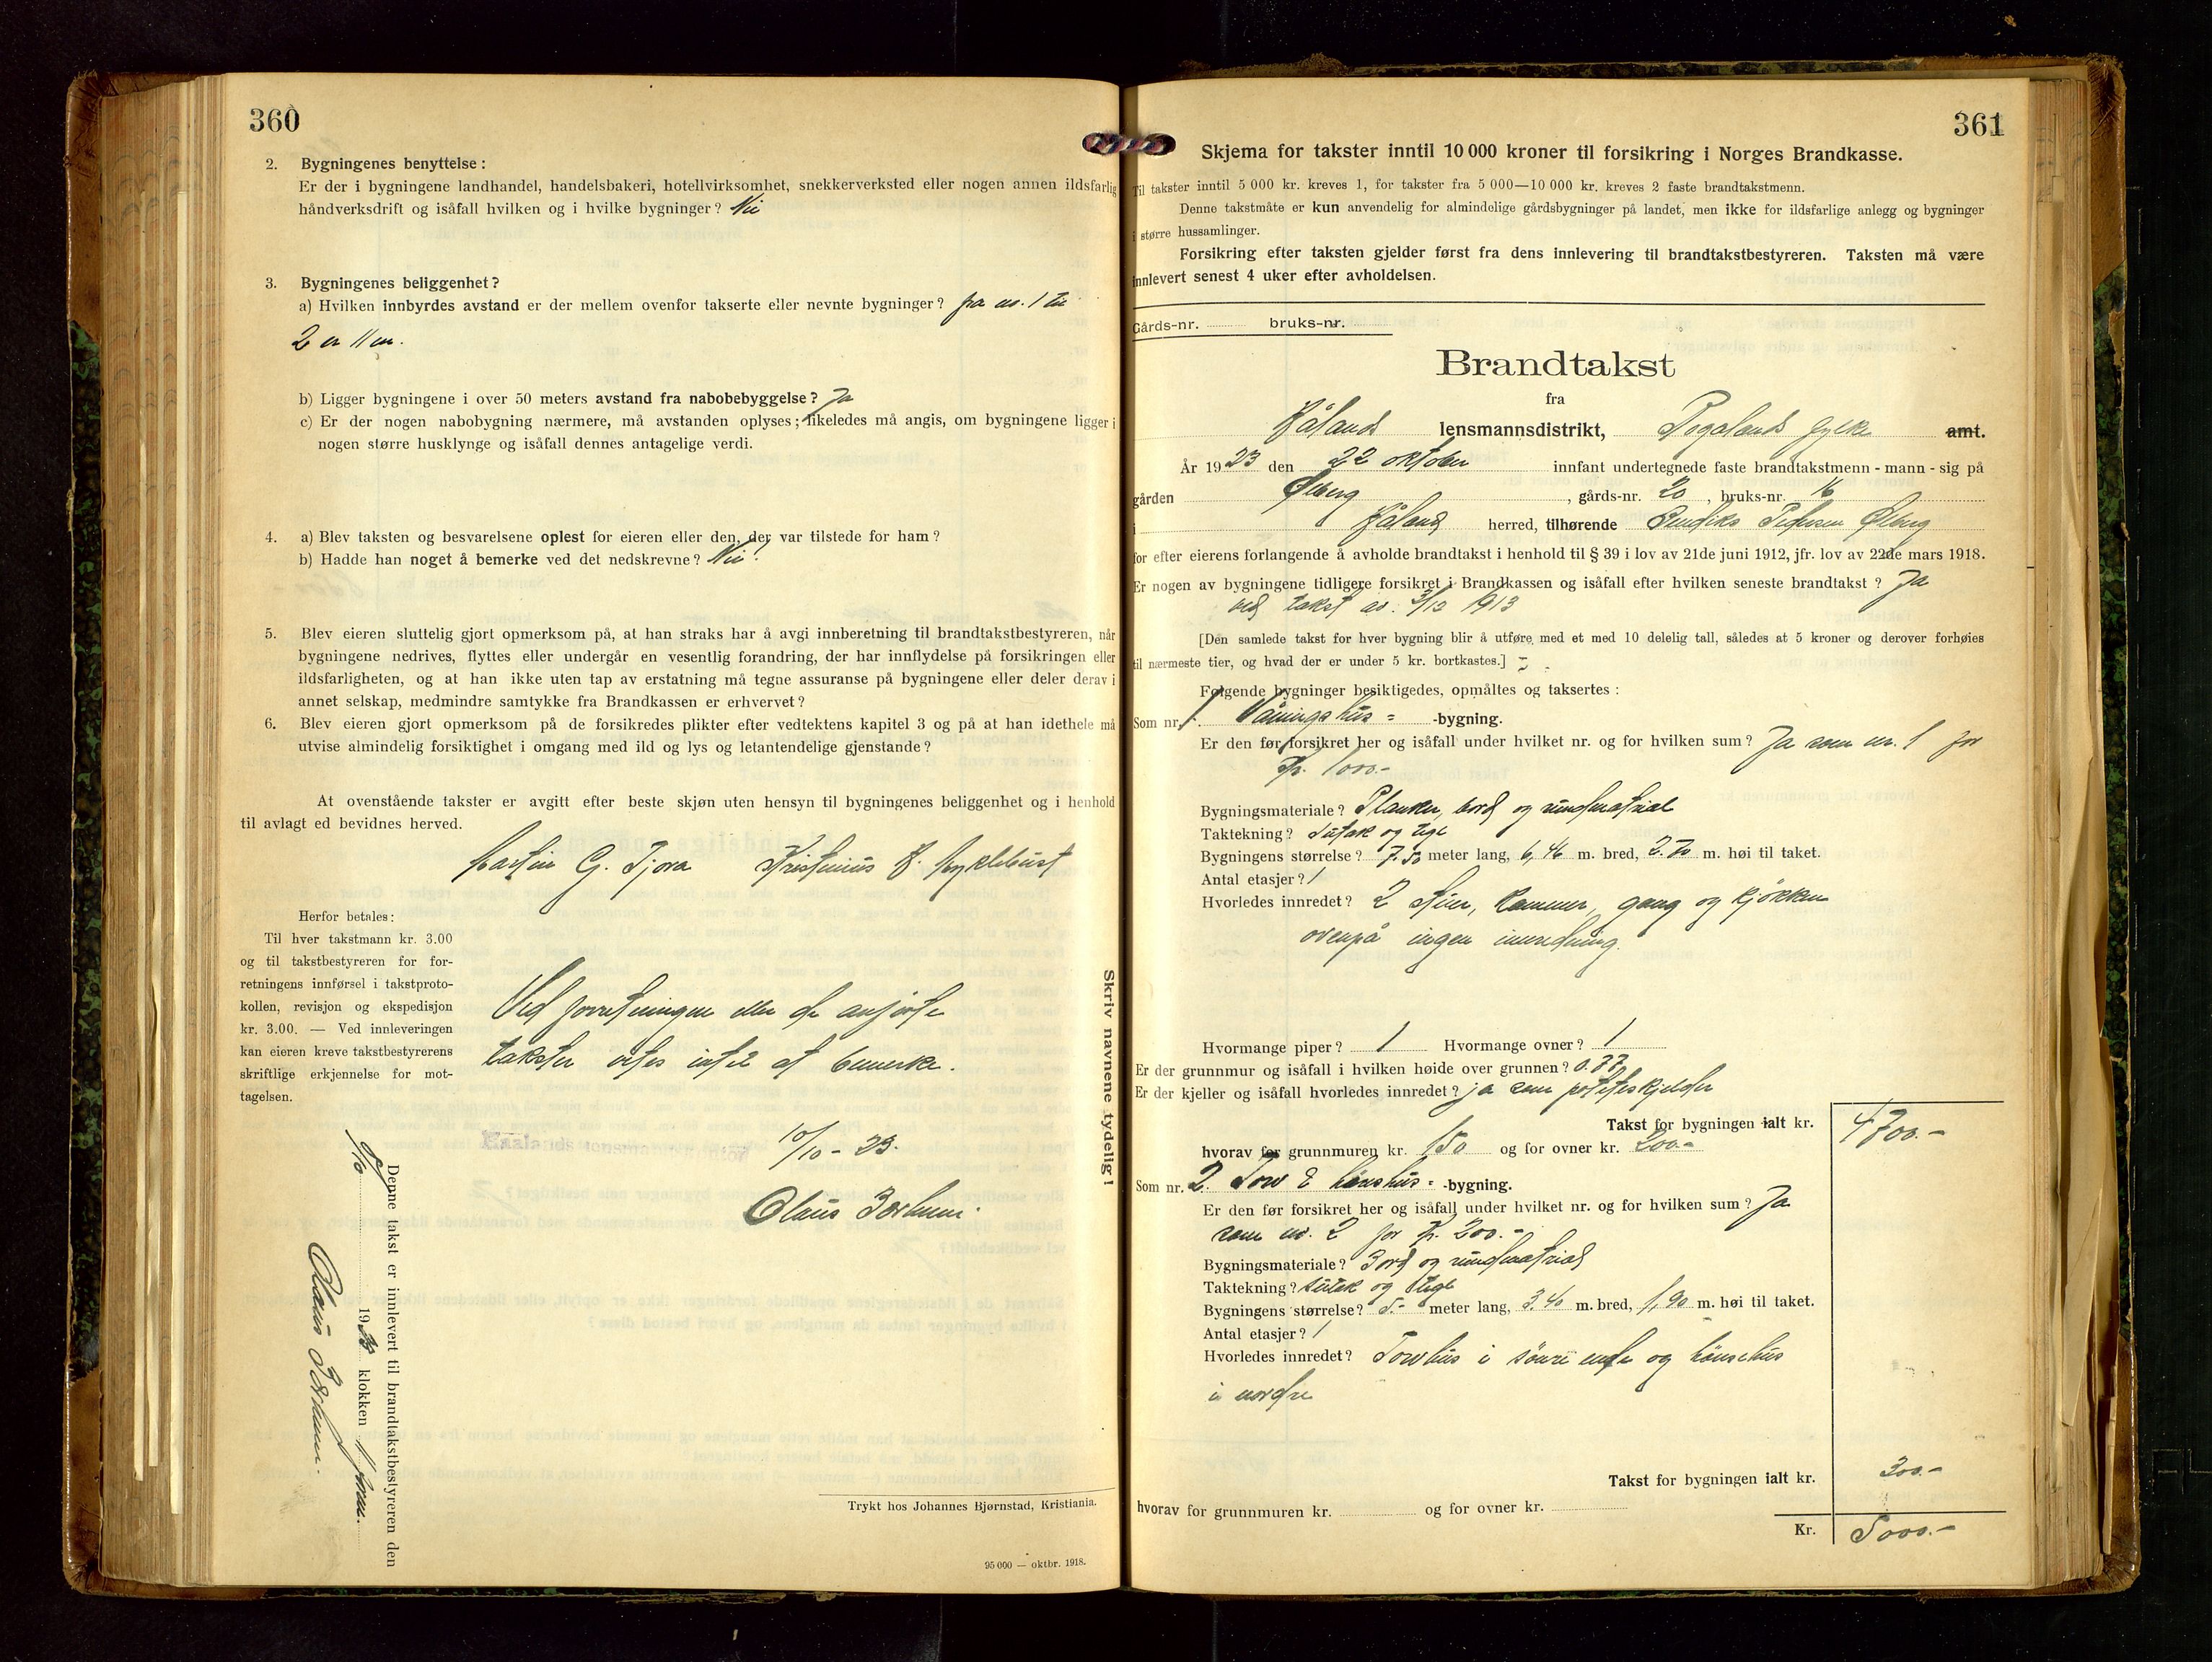 360
2. Bygningenes benyttelse:
Er der i bygningene landhandel, handelsbakeri, hotellvirksomhet, snekkerverksted eller nogen annen ildsfarlig
håndverksdrift og isåfall hvilken og i hvilke bygninger? Nei
3. Bygningenes beliggenhet?
a) Hvilken innbyrdes avstand er der mellem ovenfor takserte eller nevnte bygninger? fra nr. 1 til
2 er 11 m.
b) Ligger bygningene i over 50 meters avstand fra nabobebyggelse? Ja
c) Er der nogen nabobygning nærmere, må avstanden oplyses; likeledes må angis, om bygningene ligger i
nogen større husklynge og isåfall dennes antagelige verdi.
4. a) Blev taksten og besvarelsene oplest for eieren eller den, der var tilstede for ham?
b) Hadde han noget å bemerke ved det nedskrevne? Nei!
5. Blev eieren sluttelig gjort opmerksom på, at han straks har å avgi innberetning til brandtakstbestyreren, når
bygningene nedrives, flyttes eller undergår en vesentlig forandring, der har innflydelse på forsikringen eller
ildsfarligheten, og at han ikke uten tap av erstatning må tegne assuranse på bygningene eller deler derav i
annet selskap, medmindre samtykke fra Brandkassen er erhvervet?
6. Blev eieren gjort opmerksom på de forsikredes plikter efter vedtektens kapitel 3 og på at han idethele må
utvise almindelig forsiktighet i omgang med ild og lys og letantendelige gjenstande?
At ovenstående takster er avgitt efter beste skjøn uten hensyn til bygningenes beliggenhet og i henhold
til avlagt ed bevidnes herved.
Martin G. Tjora Kristinius H. Myklebust
Herfor betales:
Til hver takstmann kr. 3.00
og til takstbestyreren for for-
retningens innførsel i takstproto-
kollen, revisjon og ekspedisjon
kr. 3.00. — Ved innleveringen
kan eieren kreve takstbestyrerens
skriftlige erkjennelse for mot-
tagelsen.
Ved forretningen eller de anførte
takster vites intet at bemerke.
/10 - 23.
Olaus
Skriv navnene tydelig!
Denne takst er innlevert til brandtakstbestyreren den
/10 1923 klokken 11 form.
Olaus
Trykt hos Johannes Bjørnstad, Kristiania.
95 000 — oktbr. 1918.
361
Skjema for takster inntil 10 000 kroner til forsikring i Norges Brandkasse.
Til takster inntil 5 000 kr. kreves 1, for takster fra 5 000—10 000 kr. kreves 2 faste brandtakstmenn.
Denne takstmåte er kun anvendelig for almindelige gårdsbygninger på landet, men ikke for ildsfarlige anlegg og bygninger
i større hussamlinger.
Forsikring efter taksten gjelder først fra dens innlevering til brandtakstbestyreren. Taksten må være
innlevert senest 4 uker efter avholdelsen.
Gårds-nr. bruks-nr.
Brandtakst
fra
Håland lensmannsdistrikt, Rogalands fylke amt.
År 1923 den 22 oktober innfant undertegnede faste brandtakstmenn - mann - sig på
gården Ølberg, gårds-nr. 20, bruks-nr. 16
i Håland herred, tilhørende Bendiks Pedersen Ølberg
for efter eierens forlangende å avholde brandtakst i henhold til § 39 i lov av 21de juni 1912, jfr. lov av 22de mars 1918.
Er nogen av bygningene tidligere forsikret i Brandkassen og isåfall efter hvilken seneste brandtakst? Ja
ved takst av. 3/12 1913
[Den samlede takst for hver bygning blir å utføre med et med 10 delelig tall, således at 5 kroner og derover forhøies
til nærmeste tier, og hvad der er under 5 kr. bortkastes.]
Følgende bygninger besiktigedes, opmåltes og taksertes:
Som nr. 1. Våningshus = -bygning.
Er den før forsikret her og isåfall under hvilket nr. og for hvilken sum? Ja som nr. 1 for
Kr. 1000.-
Bygningsmateriale? Planker, bord og bindmaterial
Taktekning? Sutak og tegl
Bygningens størrelse? 7.50 meter lang, 6,46 m. bred, 2.70 m. høi til taket.
Antal etasjer? 1
Hvorledes innredet? 2 stuer, kammer, gang og kjøkken
ovenpå ingen innredning.
Hvormange piper? 1 Hvormange ovner? 1
Er der grunnmur og isåfall i hvilken høide over grunnen? 0.77
Er der kjeller og isåfall hvorledes innredet? ja som poteteskjelder
Takst for bygningen ialt kr. 4700.-
hvorav for grunnmuren kr. 150 og for ovner kr. 200.-
Som nr. 2. Torv & hönshus = -bygning.
Er den før forsikret her og isåfall under hvilket nr. og for hvilken sum? Ja
som nr. 2 for Kr. 200.-
Bygningsmateriale? Bord og bindmaterial
Taktekning? sutak og tegl
Bygningens størrelse? 5.- meter lang, 3.40 m. bred, 1,90 m. høi til taket.
Antal etasjer? 1
Hvorledes innredet? Torvhus i söndre ende og hönsehus
i nordre
Takst for bygningen ialt kr. 300.-
hvorav for grunnmuren kr. og for ovner kr.
Kr. 5000.-